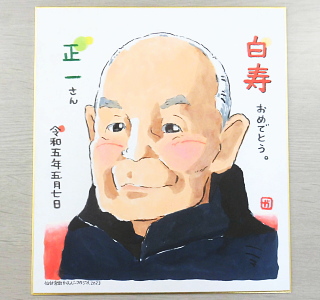 白寿
おめでとう。
正一さん
令和五年五月七日